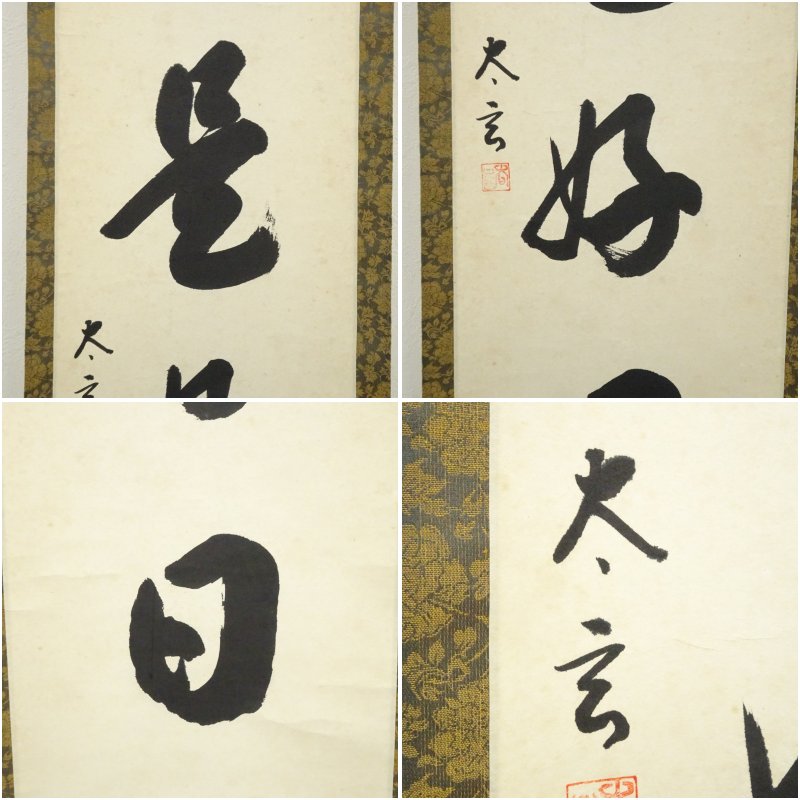 是
太玄
好
太玄
日
太玄